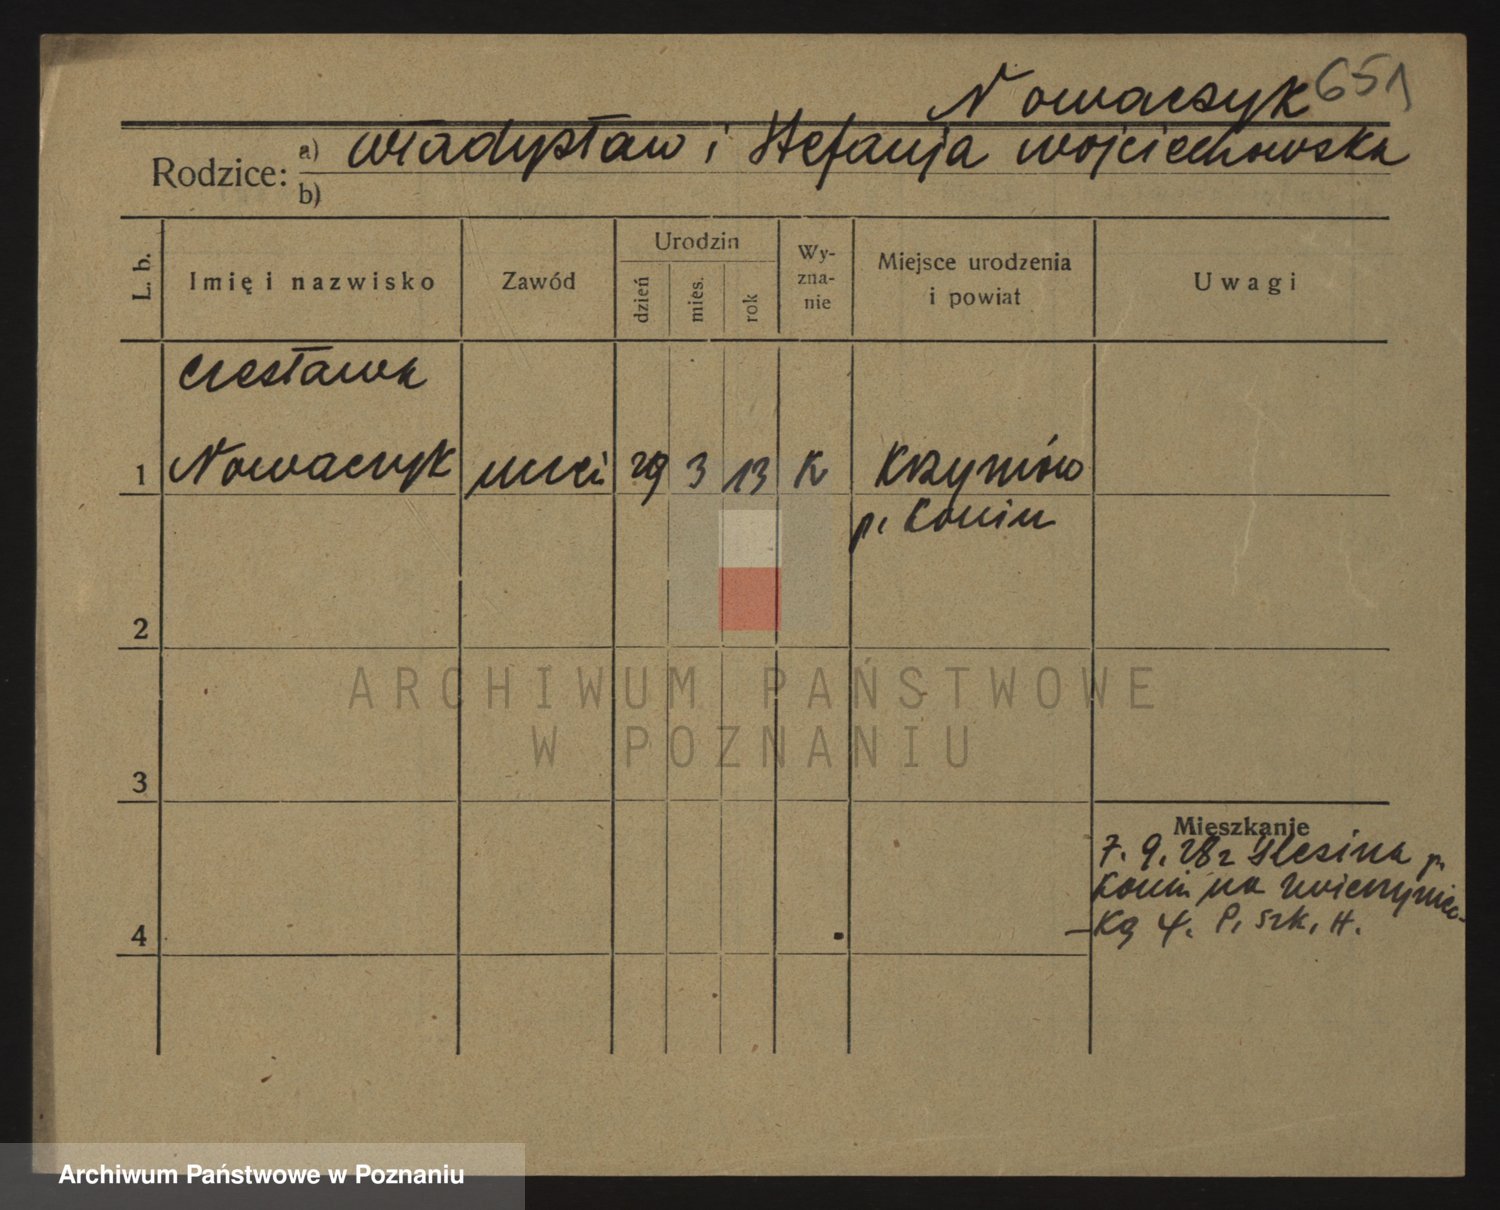 Nowaczyk 651
Rodzice: a) Władysław i Stefanja Wojciechowska
b)
L. b.
Imię i nazwisko
Zawód
Urodzin
dzień
mies.
rok
Wy-
zna-
nie
Miejsce urodzenia
i powiat
Uwagi
Czesława
1 Nowaczyk ucz. 29 3 13 K Krzymów
p. Konin
2
3
4
Mieszkanie
7. 9. 28 r Ślesina p.
Konin na Zwierzyniec-
-ką 4. P. Szk. H.
ARCHIWUM PAŃSTWOWE
W POZNANIU
Archiwum Państwowe w Poznaniu